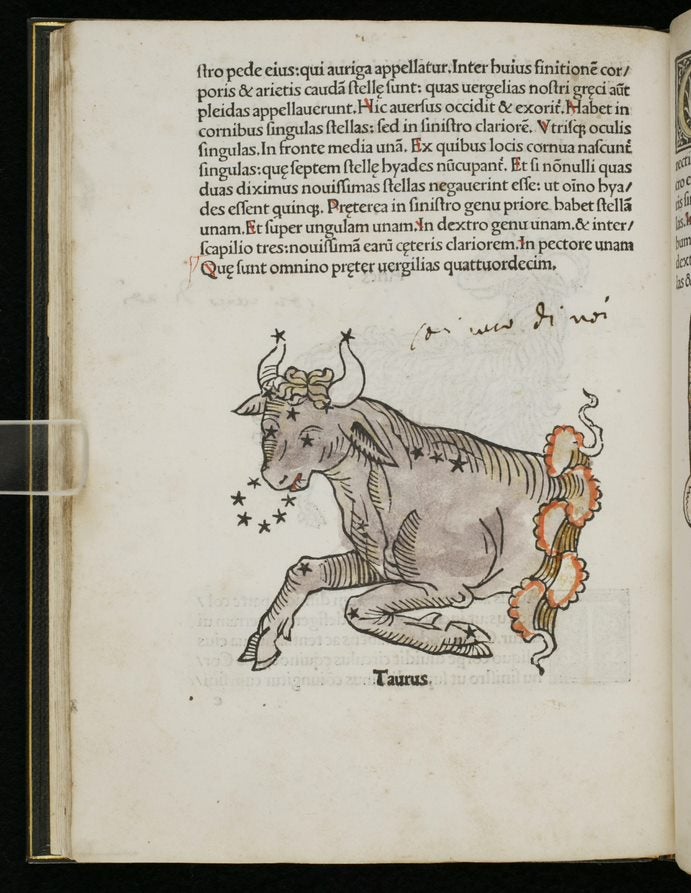 ſtro pede eius:qui auriga appellatur.Inter huius finitionē cor/
poris & arietis caudā ſtellę ſunt: quas uergilias noſtri gręci aūt
pleidas appellauerunt.Hic auerſus occidit & exorit̄.Habet in
cornibus ſingulas ſtellas: ſed in ſiniſtro clariorē. Vtriſqꝫ oculis
ſingulas.In fronte media unā. Ex quibus locis cornua naſcunt̄
ſingulas:quę ſeptem ſtellę hyades nūcupant̄. Et ſi nōnulli quas
duas diximus nouiſſimas ſtellas negauerint eſſe: ut oīno hya/
des eſſent quinqꝫ. Pręterea in ſiniſtro genu priore habet ſtellā
unam.Et ſuper ungulam unam.In dextro genu unam.& inter/
ſcapilio tres:nouiſſimā earū cęteris clariorem.In pectore unam
Quę ſunt omnino pręter uergilias quattuordecim.
di noi
Taurus